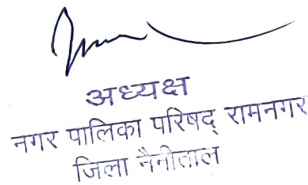 अध्यक्ष
नगर पालिका परिषद् रामनगर
जिला नैनीताल